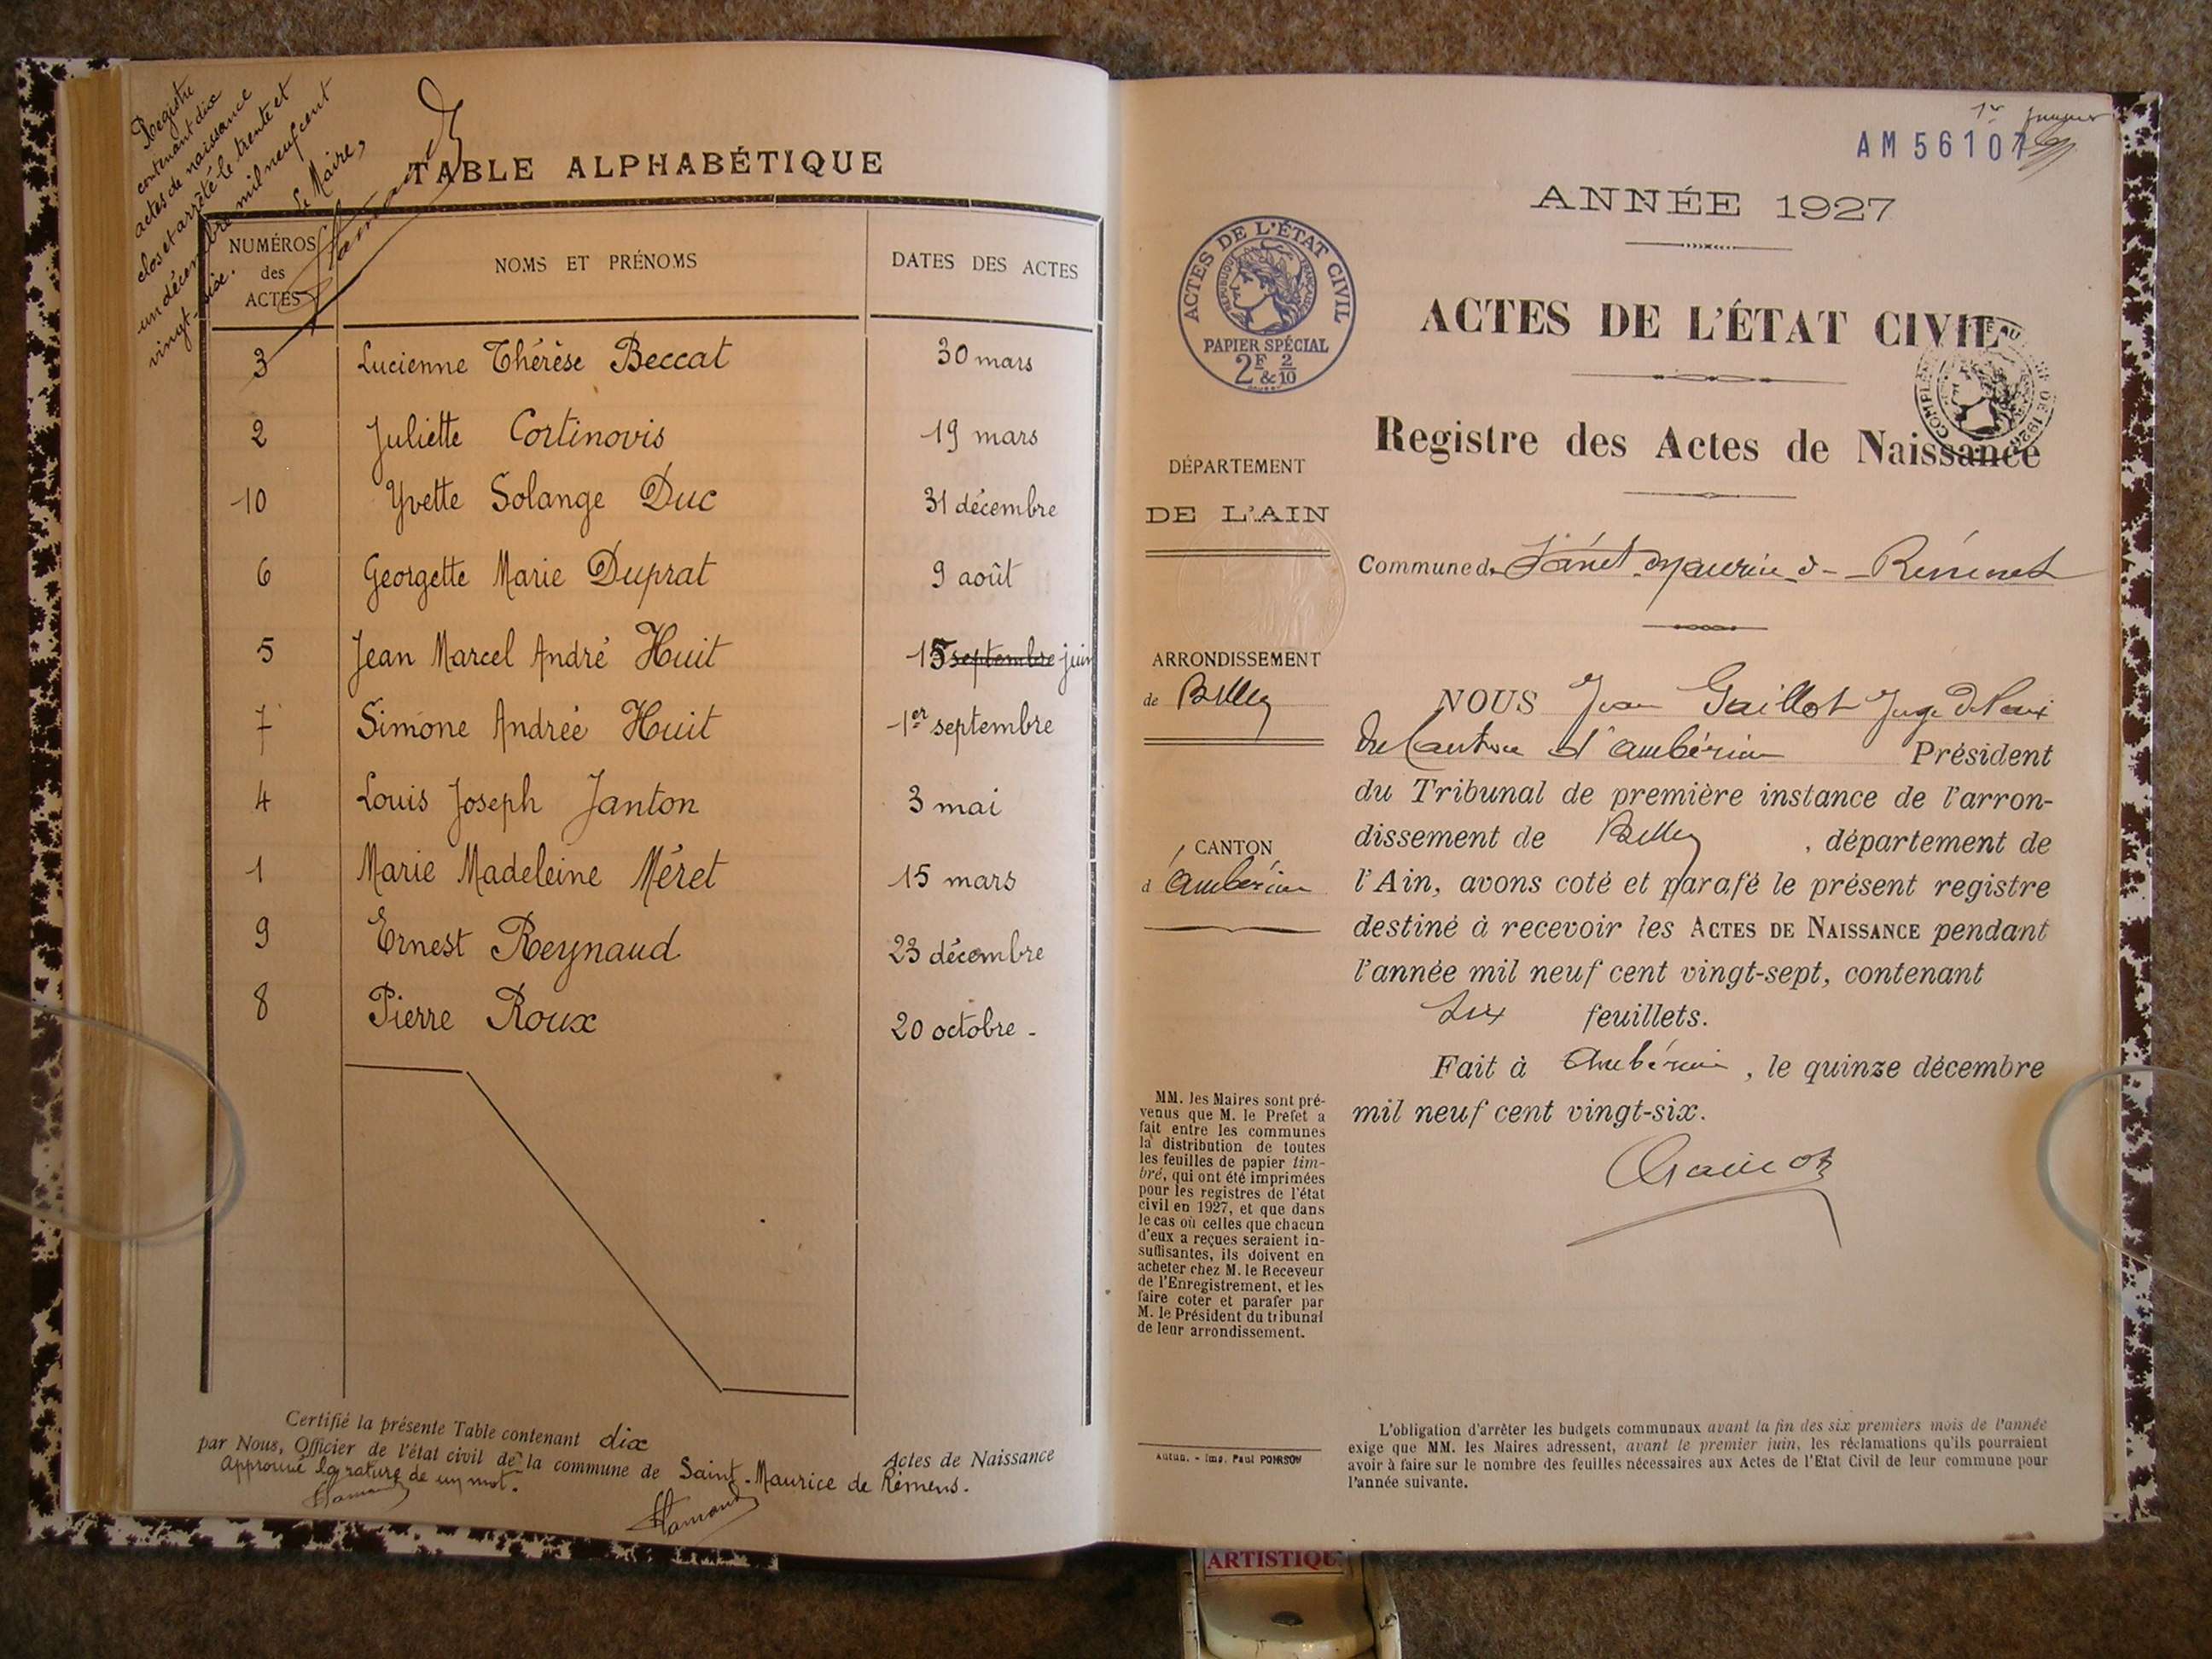 Registre
contenant dix
actes de naissance
clos et arrêté le trente et
un décembre mil neuf cent
vingt-six.
Le Maire,
TABLE ALPHABÉTIQUE
NUMÉROS des ACTES
NOMS ET PRÉNOMS
DATES DES ACTES
3 Lucienne Thérèse Beccat 30 mars
2 Juliette Cortinovis 19 mars
10 Yvette Solange Duc 31 décembre
6 Georgette Marie Duprat 9 août
5 Jean Marcel André Huit 15 septembre juin
7 Simone Andrée Huit 1er septembre
4 Louis Joseph Janton 3 mai
1 Marie Madeleine Méret 15 mars
9 Ernest Reynaud 23 décembre
8 Pierre Roux 20 octobre -
Certifié la présente Table contenant dix Actes de Naissance
par Nous, Officier de l'état civil de la commune de Saint-Maurice de Rémens.
Approuvé la rature de un mot.
AM 56107
ANNÉE 1927
ACTES DE L'ÉTAT CIVIL
RÉPUBLIQUE FRANÇAISE
PAPIER SPÉCIAL
2F & 2/10
ACTES DE L'ÉTAT CIVIL
Registre des Actes de Naissance
DÉPARTEMENT
DE L'AIN
Commune de
ARRONDISSEMENT
de Belley
CANTON
d'Ambérieu
NOUS Jean Gaillot Juge de Paix
du Canton d'Ambérieu Président
du Tribunal de première instance de l'arron-
dissement de Belley, département de
l'Ain, avons coté et parafé le présent registre
destiné à recevoir les ACTES DE NAISSANCE pendant
l'année mil neuf cent vingt-sept, contenant
feuillets.
Fait à Ambérieu, le quinze décembre
mil neuf cent vingt-six.
MM. les Maires sont pré-
venus que M. le Préfet a
fait entre les communes
la distribution de toutes
les feuilles de papier tim-
bré, qui ont été imprimées
pour les registres de l'état
civil en 1927, et que dans
le cas où celles que chacun
d'eux a reçues seraient in-
suffisantes, ils doivent en
acheter chez M. le Receveur
de l'Enregistrement, et les
faire coter et parafer par
M. le Président du tribunal
de leur arrondissement.
Autun. - Imp. Paul
L'obligation d'arrêter les budgets communaux avant la fin des six premiers mois de l'année
exige que MM. les Maires adressent, avant le premier juin, les réclamations qu'ils pourraient
avoir à faire sur le nombre des feuilles nécessaires aux Actes de l'Etat Civil de leur commune pour
l'année suivante.
ARTISTIQU